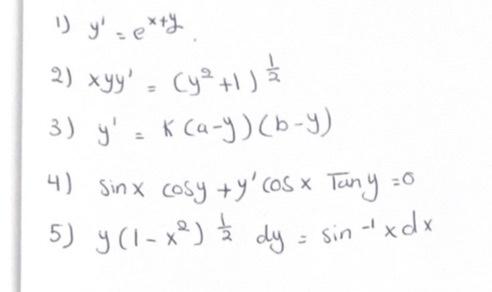 1) y' = e^{x+y}.
2) xyy' = (y²+1)^{1/2}
3) y' = K(a-y)(b-y)
4) sinx cosy + y' cos x Tan y = 0
5) y(1-x²)^{1/2} dy = sin⁻¹ x dx